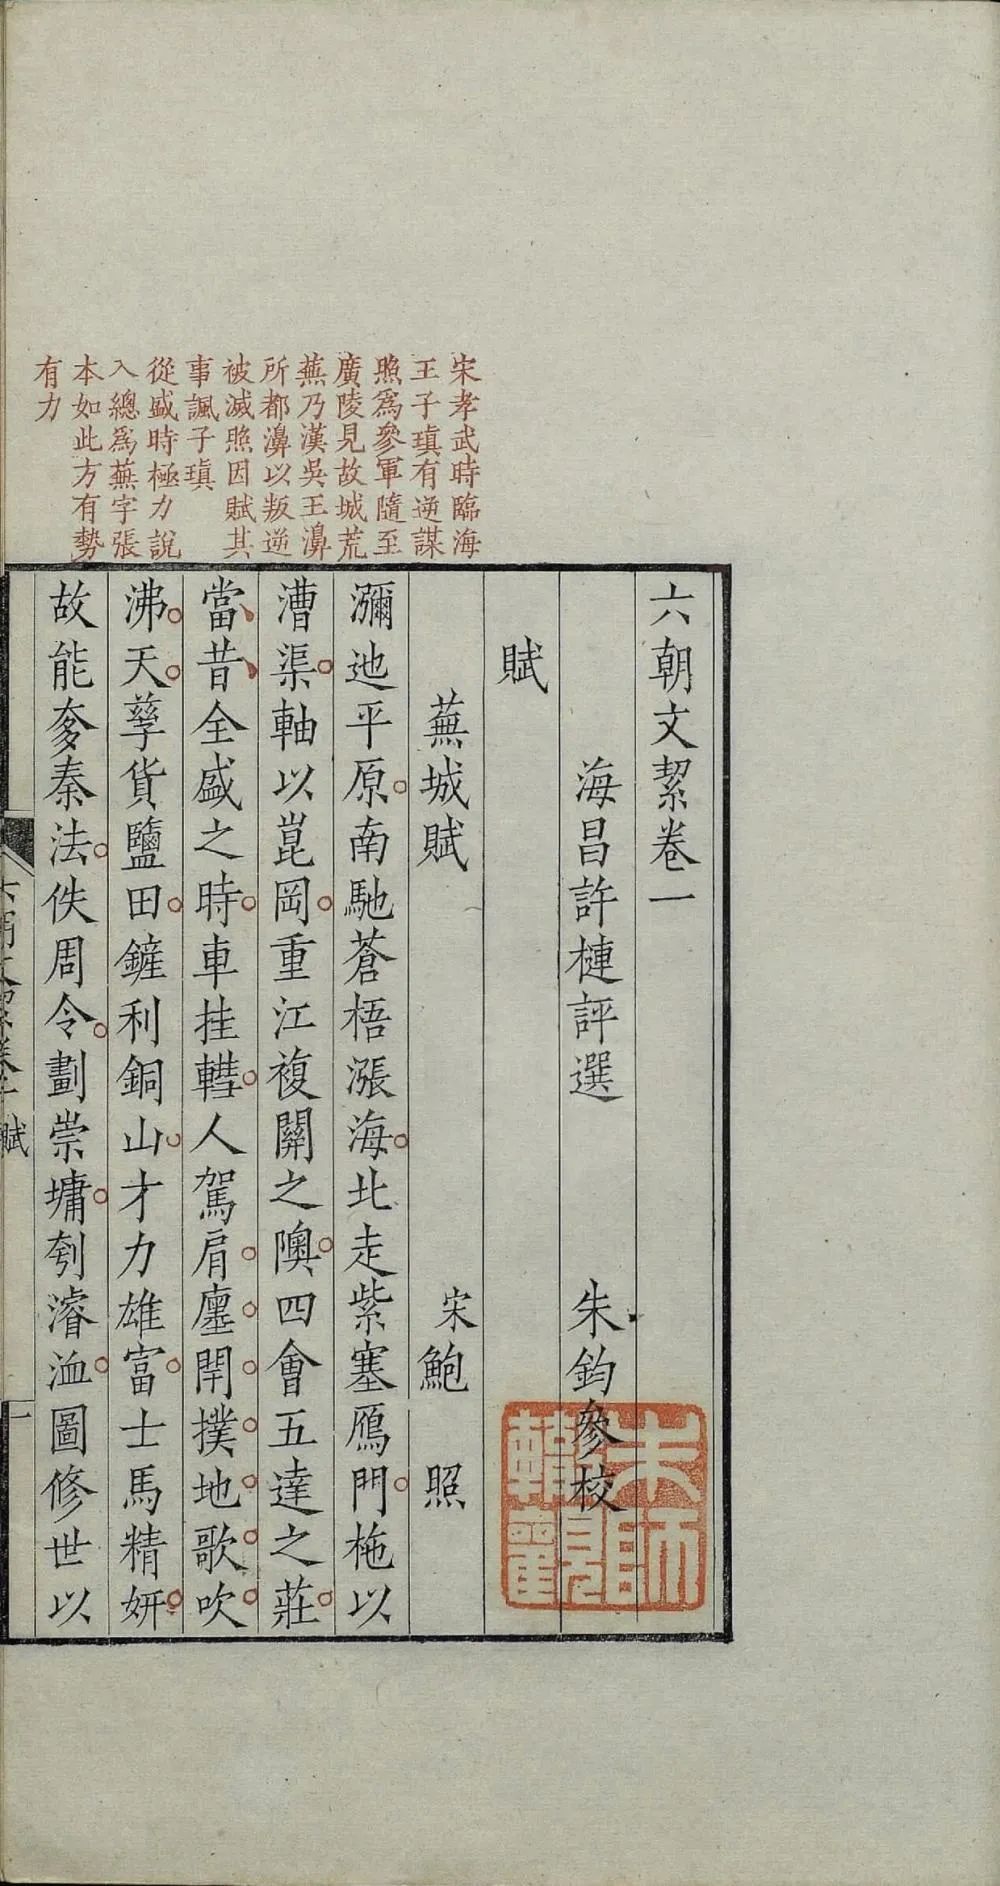 六朝文絜卷一
海昌許槤評選 朱鈞參校
賦
蕪城賦 宋鮑照
瀰迆平原南馳蒼梧漲海北走紫塞鴈門柂以
漕渠軸以崑岡重江複關之隩四會五達之莊
當昔全盛之時車挂轊人駕肩廛閈撲地歌吹
沸天孳貨鹽田鏟利銅山才力雄富士馬精妍
故能奓秦法佚周令劃崇墉刳濬洫圖修世以
宋孝武時臨海
王子瑱有逆謀
照爲參軍隨至
廣陵見故城荒
蕪乃漢吳王濞
所都濞以叛逆
被滅照因賦其
事諷子瑱
從盛時極力說
入總爲蕪字張
本如此方有勢
有力
賦
一